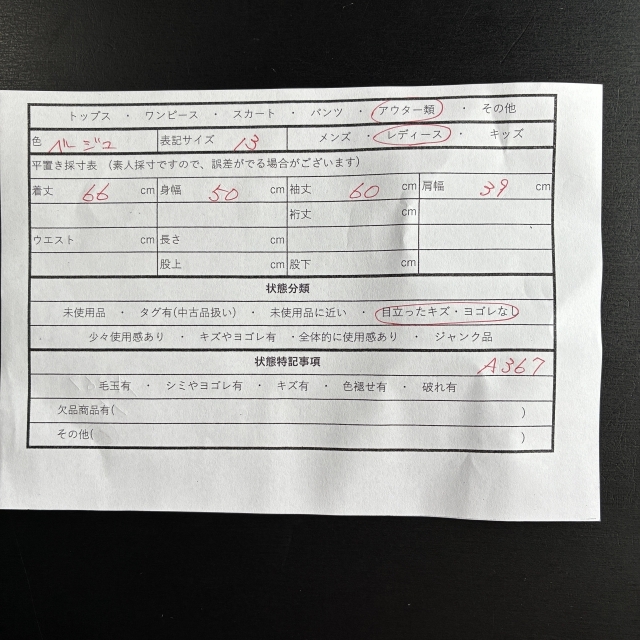 トップス ・ ワンピース ・ スカート ・ パンツ ・ アウター類 ・ その他
色 ベージュ 表記サイズ 13 メンズ ・ レディース ・ キッズ
平置き採寸表 (素人採寸ですので、誤差がでる場合がございます)
着丈 66 cm 身幅 50 cm 袖丈 60 cm 肩幅 39 cm
裄丈 cm
ウエスト cm 長さ cm
股上 cm 股下 cm
状態分類
未使用品 ・ タグ有(中古品扱い) ・ 未使用品に近い ・ 目立ったキズ・ヨゴレなし
少々使用感あり ・ キズやヨゴレ有 ・全体的に使用感あり ・ ジャンク品
状態特記事項 A367
毛玉有 ・ シミやヨゴレ有 ・ キズ有 ・ 色褪せ有 ・ 破れ有
欠品商品有( )
その他( )